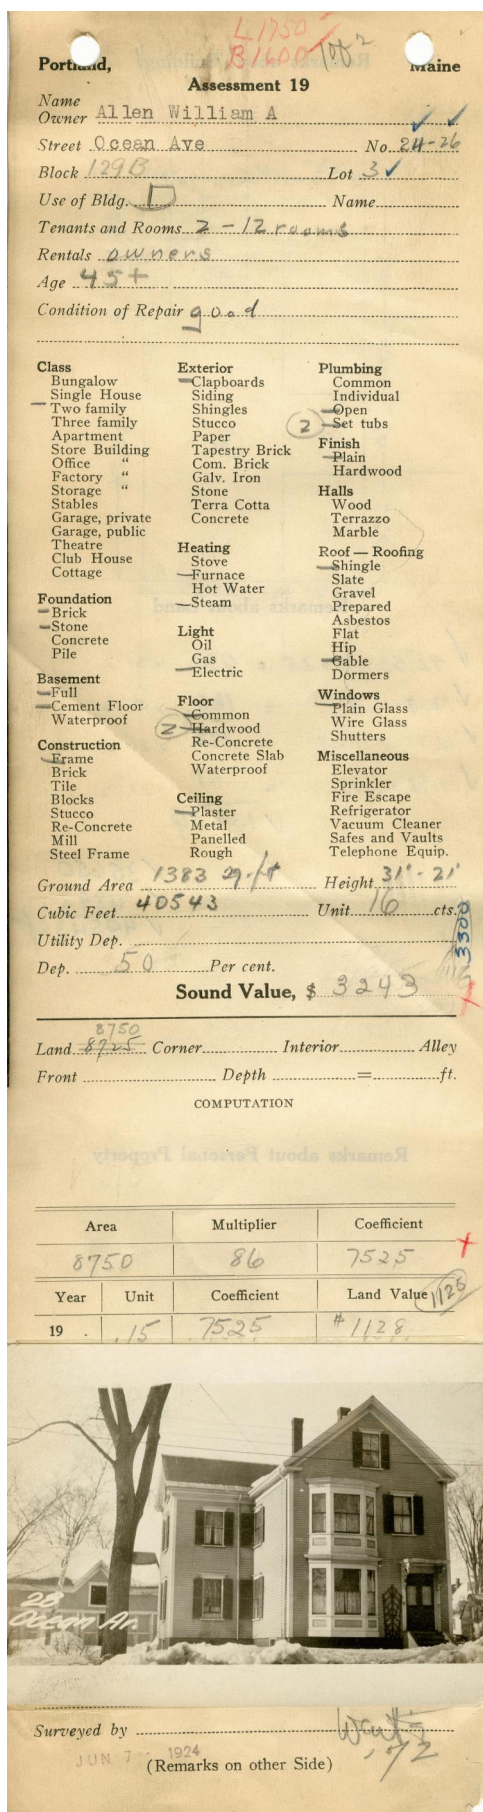 L 1750
B 1600 1 of 2
Portland, Maine
Assessment 19
Name
Owner Allen William A
Street Ocean Ave No. 24-26
Block 129B Lot 3
Use of Bldg. D Name
Tenants and Rooms 2 - 12 rooms
Rentals owners
Age 45+
Condition of Repair good
Class
Bungalow
Single House
Two family
Three family
Apartment
Store Building
Office "
Factory "
Storage "
Stables
Garage, private
Garage, public
Theatre
Club House
Cottage
Foundation
Brick
Stone
Concrete
Pile
Basement
Full
Cement Floor
Waterproof
Construction
Frame
Brick
Tile
Blocks
Stucco
Re-Concrete
Mill
Steel Frame
Exterior
Clapboards
Siding
Shingles
Stucco
Paper
Tapestry Brick
Com. Brick
Galv. Iron
Stone
Terra Cotta
Concrete
Heating
Stove
Furnace
Hot Water
Steam
Light
Oil
Gas
Electric
Floor
Common
2 Hardwood
Re-Concrete
Concrete Slab
Waterproof
Ceiling
Plaster
Metal
Panelled
Rough
Plumbing
Common
Individual
Open
2 Set tubs
Finish
Plain
Hardwood
Halls
Wood
Terrazzo
Marble
Roof — Roofing
Shingle
Slate
Gravel
Prepared
Asbestos
Flat
Hip
Gable
Dormers
Windows
Plain Glass
Wire Glass
Shutters
Miscellaneous
Elevator
Sprinkler
Fire Escape
Refrigerator
Vacuum Cleaner
Safes and Vaults
Telephone Equip.
Ground Area 1383 sq. ft Height 31' - 21'
Cubic Feet 40543 Unit 16 cts.
Utility Dep.
3300
Dep. 50 Per cent.
Sound Value, $ 3243
8750
Land 8725 Corner Interior Alley
Front Depth = ft.
COMPUTATION
Remarks about Personal Property
Area Multiplier Coefficient
8750 86 7525
Year Unit Coefficient Land Value 1125
19 . .15 7525 $1128
28
Ocean Av.
Surveyed by
72
JUN 7 - 1924
(Remarks on other Side)